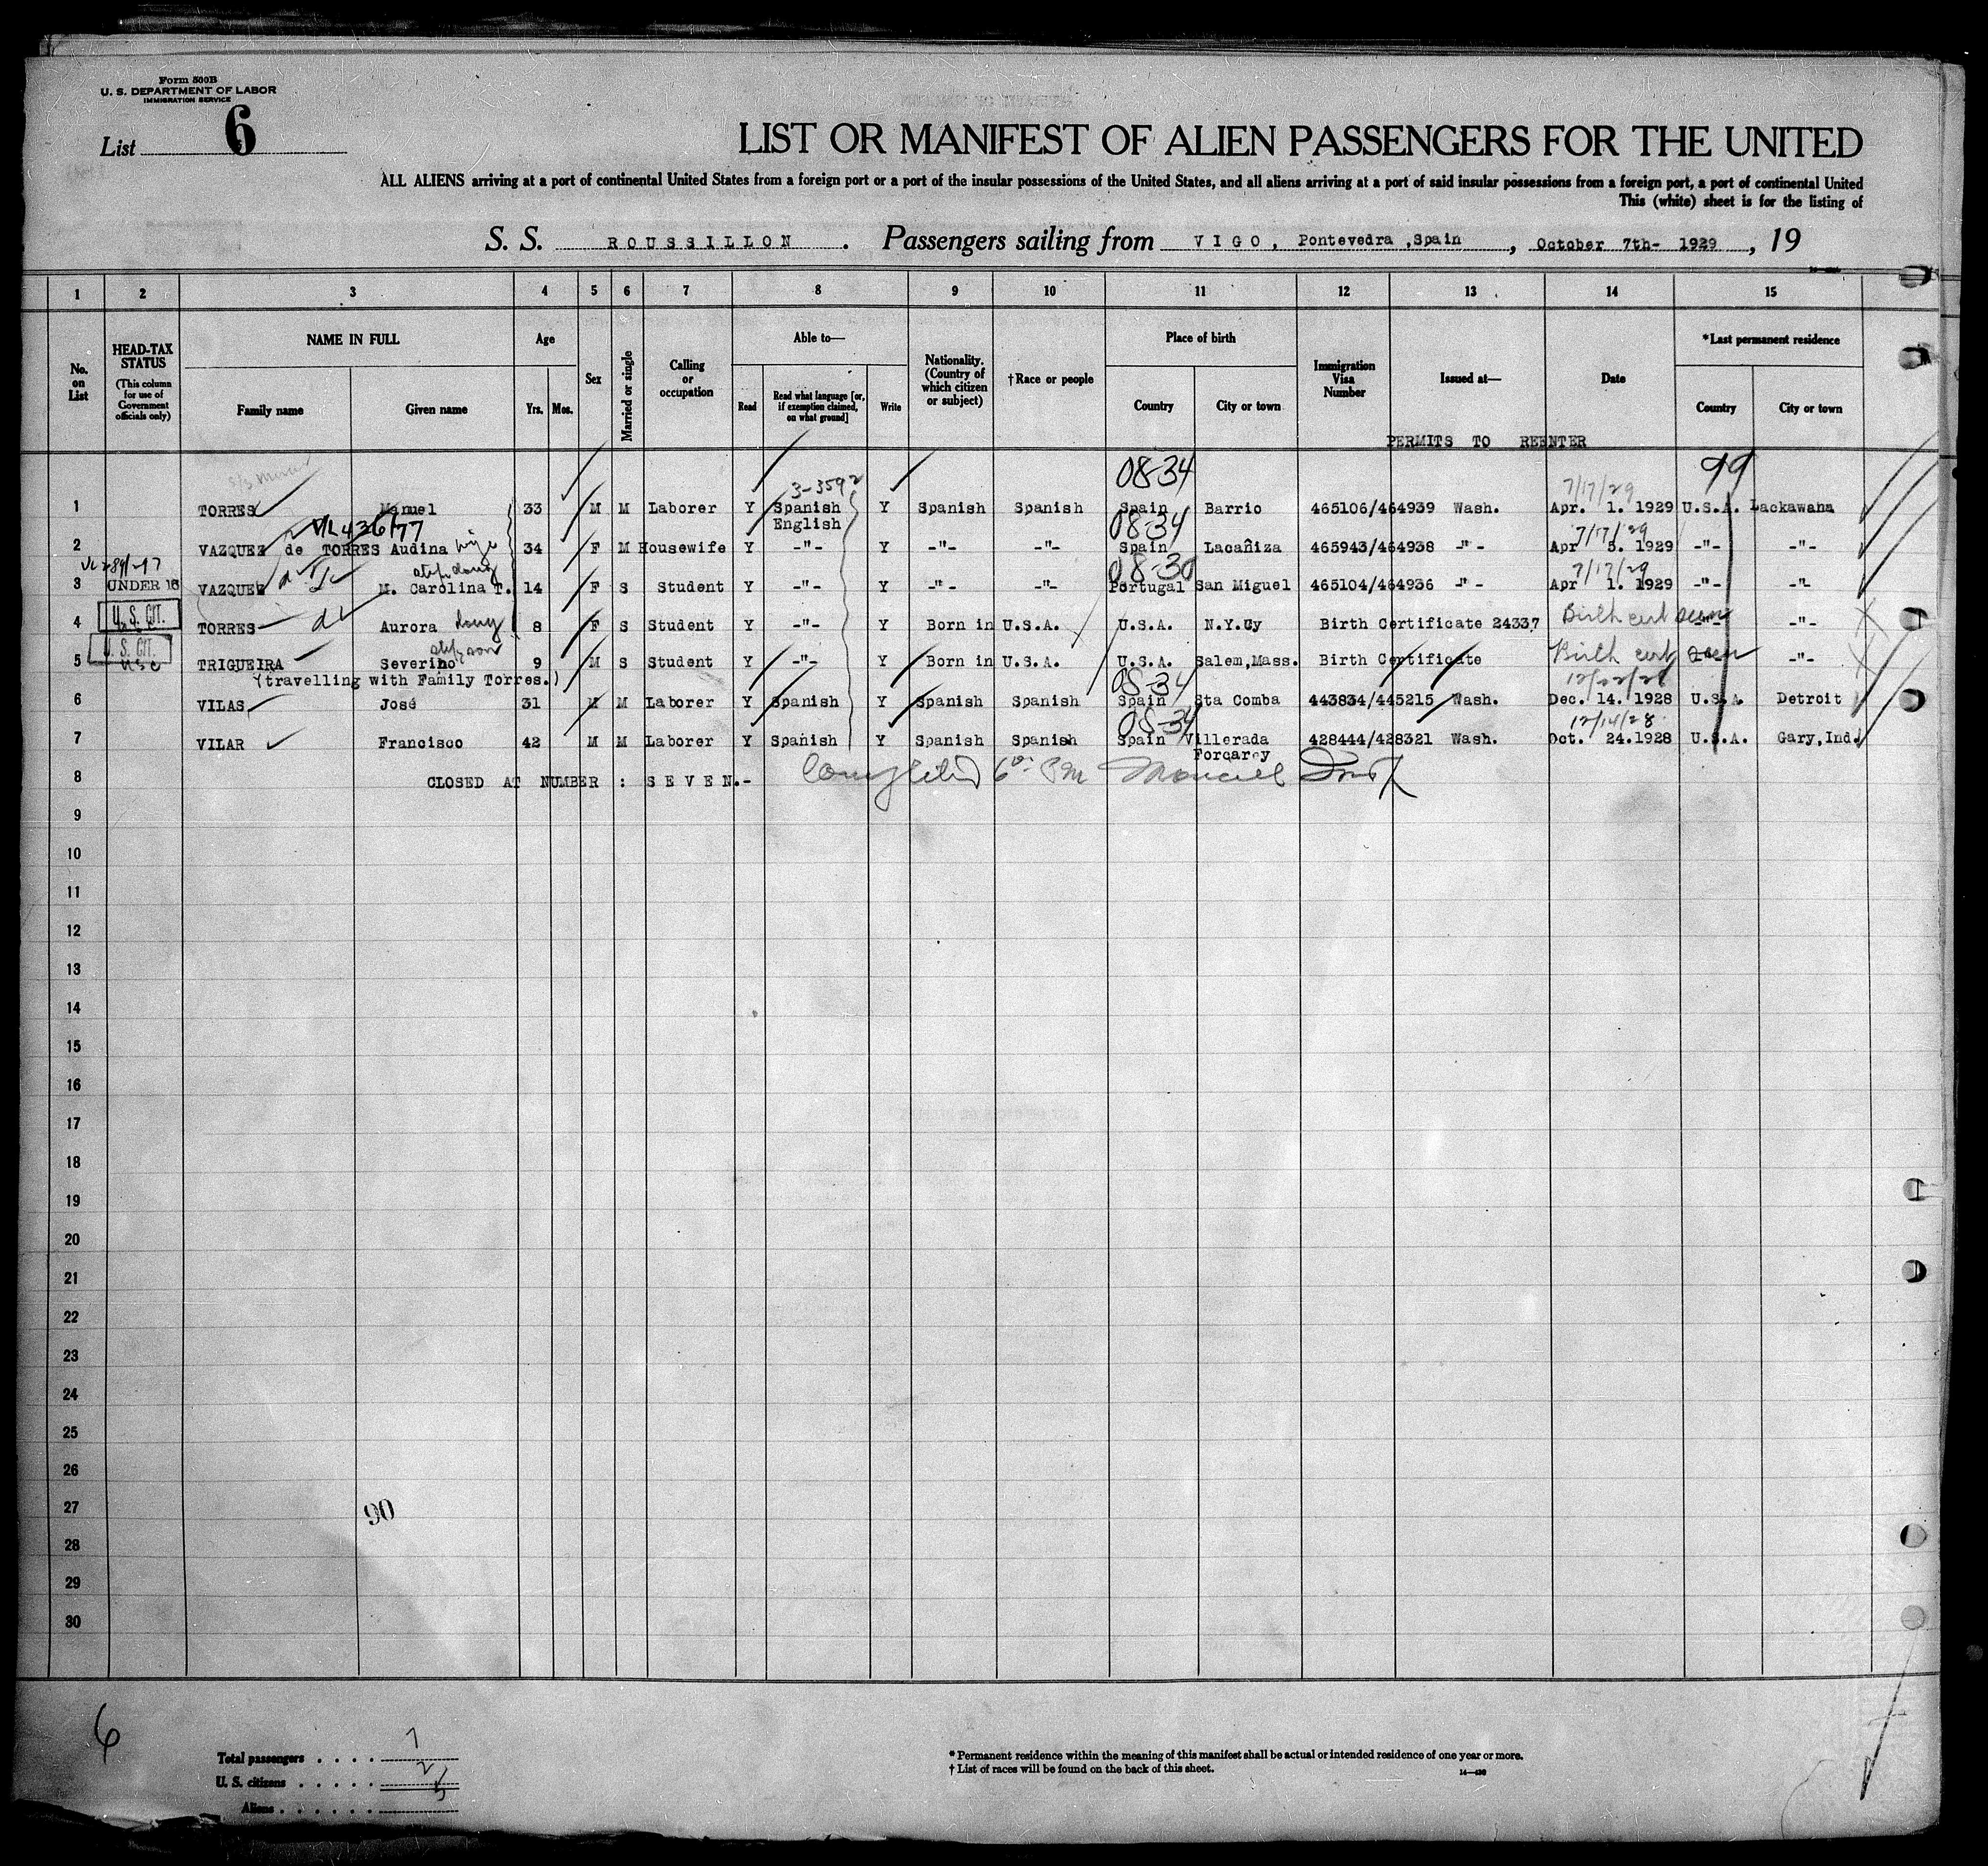 Form 500B
U. S. DEPARTMENT OF LABOR
IMMIGRATION SERVICE
List 6
LIST OR MANIFEST OF ALIEN PASSENGERS FOR THE UNITED
ALL ALIENS arriving at a port of continental United States from a foreign port or a port of the insular possessions of the United States, and all aliens arriving at a port of said insular possessions from a foreign port, a port of continental United
This (white) sheet is for the listing of
S. S. ROUSSILLON. Passengers sailing from VIGO, Pontevedra ,Spain, October 7th- 1929, 19
1 2 3 4 5 6 7 8 9 10 11 12 13 14 15
No. on List
HEAD-TAX STATUS (This column for use of Government officials only)
NAME IN FULL
Family name
Given name
Age
Yrs. Mos.
Sex
Married or single
Calling or occupation
Able to—
Read
Read what language [or, if exemption claimed, on what ground]
Write
Nationality. (Country of which citizen or subject)
†Race or people
Place of birth
Country
City or town
Immigration Visa Number
Issued at—
Date
*Last permanent residence
Country
City or town
PERMITS TO REENTER
08-34 99
3-3592 7/17/29
1 TORRES Manuel 33 M M Laborer Y Spanish Y Spanish Spanish Spain Barrio 465106/464939 Wash. Apr. 1. 1929 U.S.A. Lackawana
English
08-34 7/17/29
2 VAZQUEZ de TORRES Audina wife 34 F M Housewife Y -"- Y -"- -"- Spain Lacañiza 465943/464938 -"- Apr 5. 1929 -"- -"-
step daug 08-30 7/17/29
3 UNDER 16 VAZQUEZ M. Carolina T. 14 F S Student Y -"- Y -"- -"- Portugal San Miguel 465104/464936 -"- Apr 1. 1929 -"- -"-
U.S. CIT.
4 TORRES Aurora daug 8 F S Student Y -"- Y Born in U.S.A. U.S.A. N.Y.Cy Birth Certificate 24337 Birth cert seen -"- -"-
U.S. CIT.
step son
5 USC TRIGUEIRA Severino 9 M S Student Y -"- Y Born in U.S.A. U.S.A. Salem,Mass. Birth Certificate Birth cert seen -"-
(travelling with Family Torres.)
08-34
6 VILAS José 31 M M Laborer Y Spanish Y Spanish Spanish Spain Sta Comba 443834/445215 Wash. Dec. 14. 1928 U.S.A. Detroit
08-34 12/14/28
7 VILAR Francisco 42 M M Laborer Y Spanish Y Spanish Spanish Spain Villerada 428444/428321 Wash. Oct. 24.1928 U.S.A. Gary,Ind.
Forcarey
8 CLOSED AT NUMBER : SEVEN.-
9
10
11
12
13
14
15
16
17
18
19
20
21
22
23
24
25
26
27 90
28
29
30
6
Total passengers . . . . 7
U. S. citizens . . . . . 2
Aliens . . . . . . 5
* Permanent residence within the meaning of this manifest shall be actual or intended residence of one year or more.
† List of races will be found on the back of this sheet.